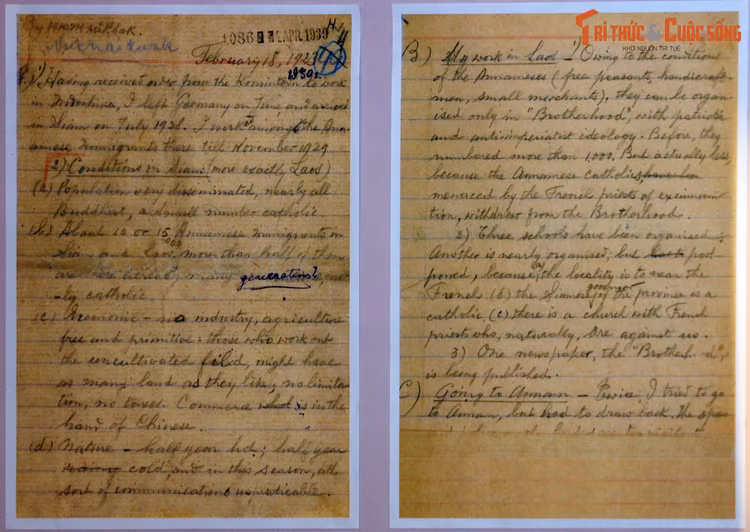 TRI THỨC & CUỘC SỐNG
KHƠI NGUỒN TRI TUỆ
1 APR 1930
February 18, 192
1930
1, Having received order from the Komintern to work
in Indochina, I left Germany on June and arrived
in Siam on July 1928. I worked among the Ann-
amese immigrants there till November 1929
2) Conditions in Siam (more exactly Laos)
(a) Population very disseminated, nearly all
Buddhist, a small number catholic.
(b) About 10 or 15,000 Annamese immigrants in
Siam and Laos, more than half of them
are there already many generations
-ly catholic.
(c) Economic - no industry, agriculture
free and primitive: those who work out
the uncultivated field, might have
as many land as they like; no limita-
tion, no taxes. Commerce is in the
hand of Chinese.
(d) Nature - half year hot; half year
cold, and in this season, all
sort of communications unpracticable.
B) My work in Laos 1) Owing to the conditions
of the Annameses (free peasants, handicraft-
men, small merchants), they can be organ-
ised only in "Brotherhood", with patriotic
and antiimperialist ideology. Before, they
numbered more than 1,000. But actually less,
because the Annamese catholics
menaced by the French priests of excommunica-
tion, withdrew from the Brotherhood.
2) Three schools have been organised.
Another is nearly organised, but post-
poned, because (a) the locality is to near the
French (b) the Siamese governor of the province is a
catholic (c) there is a church with French
priests who, naturally, are against us.
3) One newspaper, the "Brotherhood", 
is being published.
C) Going to Annam - Twice, I tried to go
to Annam, but had to draw back. The